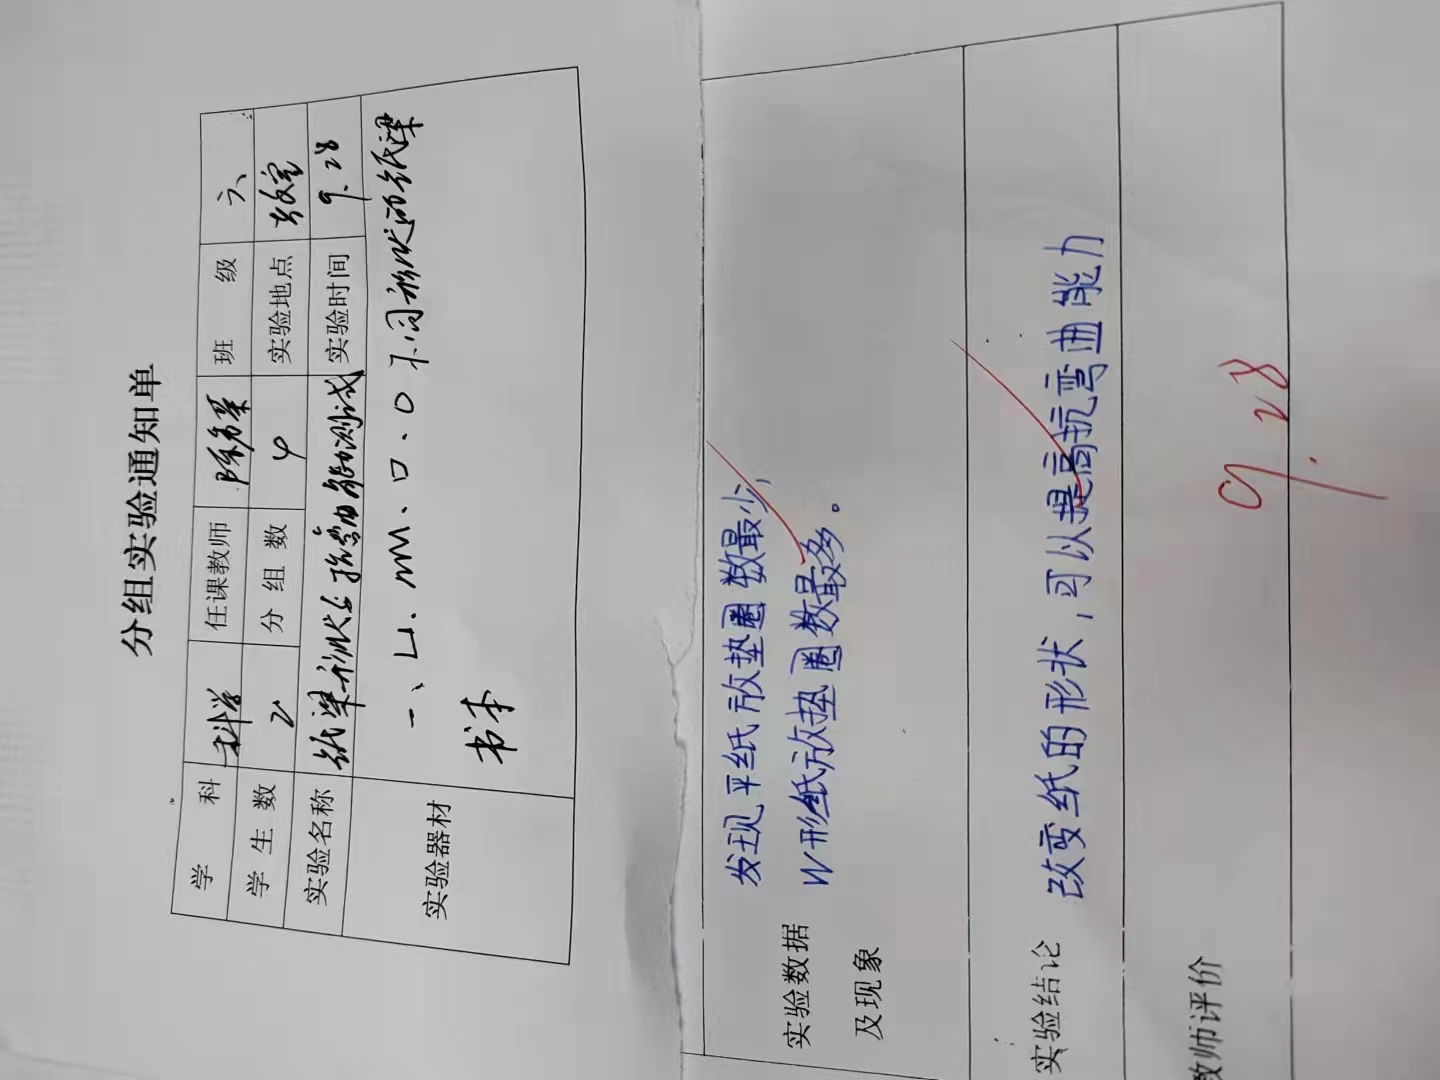 分组实验通知单
学 科 科学 任课教师 班 级 六
学生数 分组数 实验地点 教室
实验名称 纸梁形状与抗弯曲能测试 实验时间 9.28
实验器材 一、凵.M.口.O不同形状的纸梁
书本
实验数据及现象
发现平纸放垫圈数最少,
W形纸放垫圈数最多。
实验结论
改变纸的形状,可以提高抗弯曲能力
教师评价
9.28